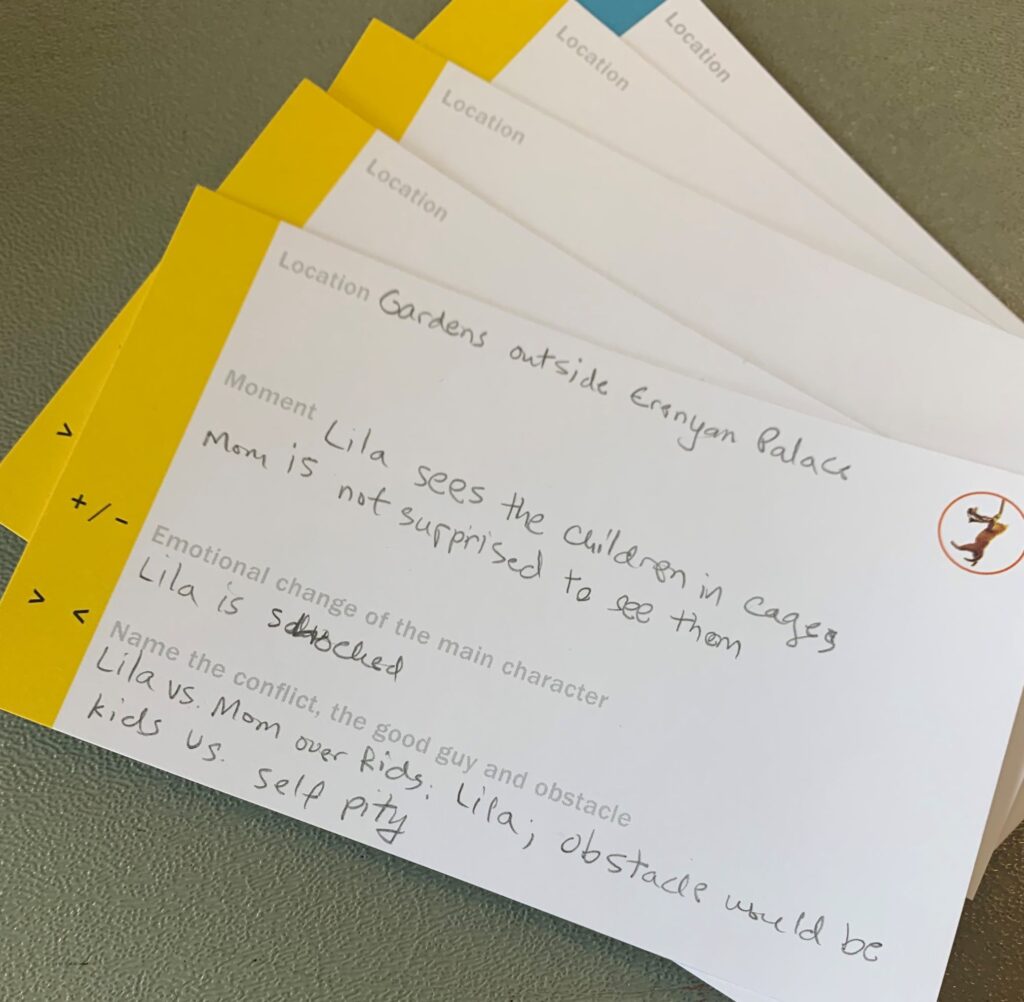 Location
Location
Location
Location
Location Gardens outside Erenyan Palace
Moment Lila sees the children in cages
Mom is not surprised to see them
Emotional change of the main character
Lila is shocked
Name the conflict, the good guy and obstacle
Lila vs. Mom over kids. Lila; obstacle would be
kids vs. self pity
>
+/-
> <